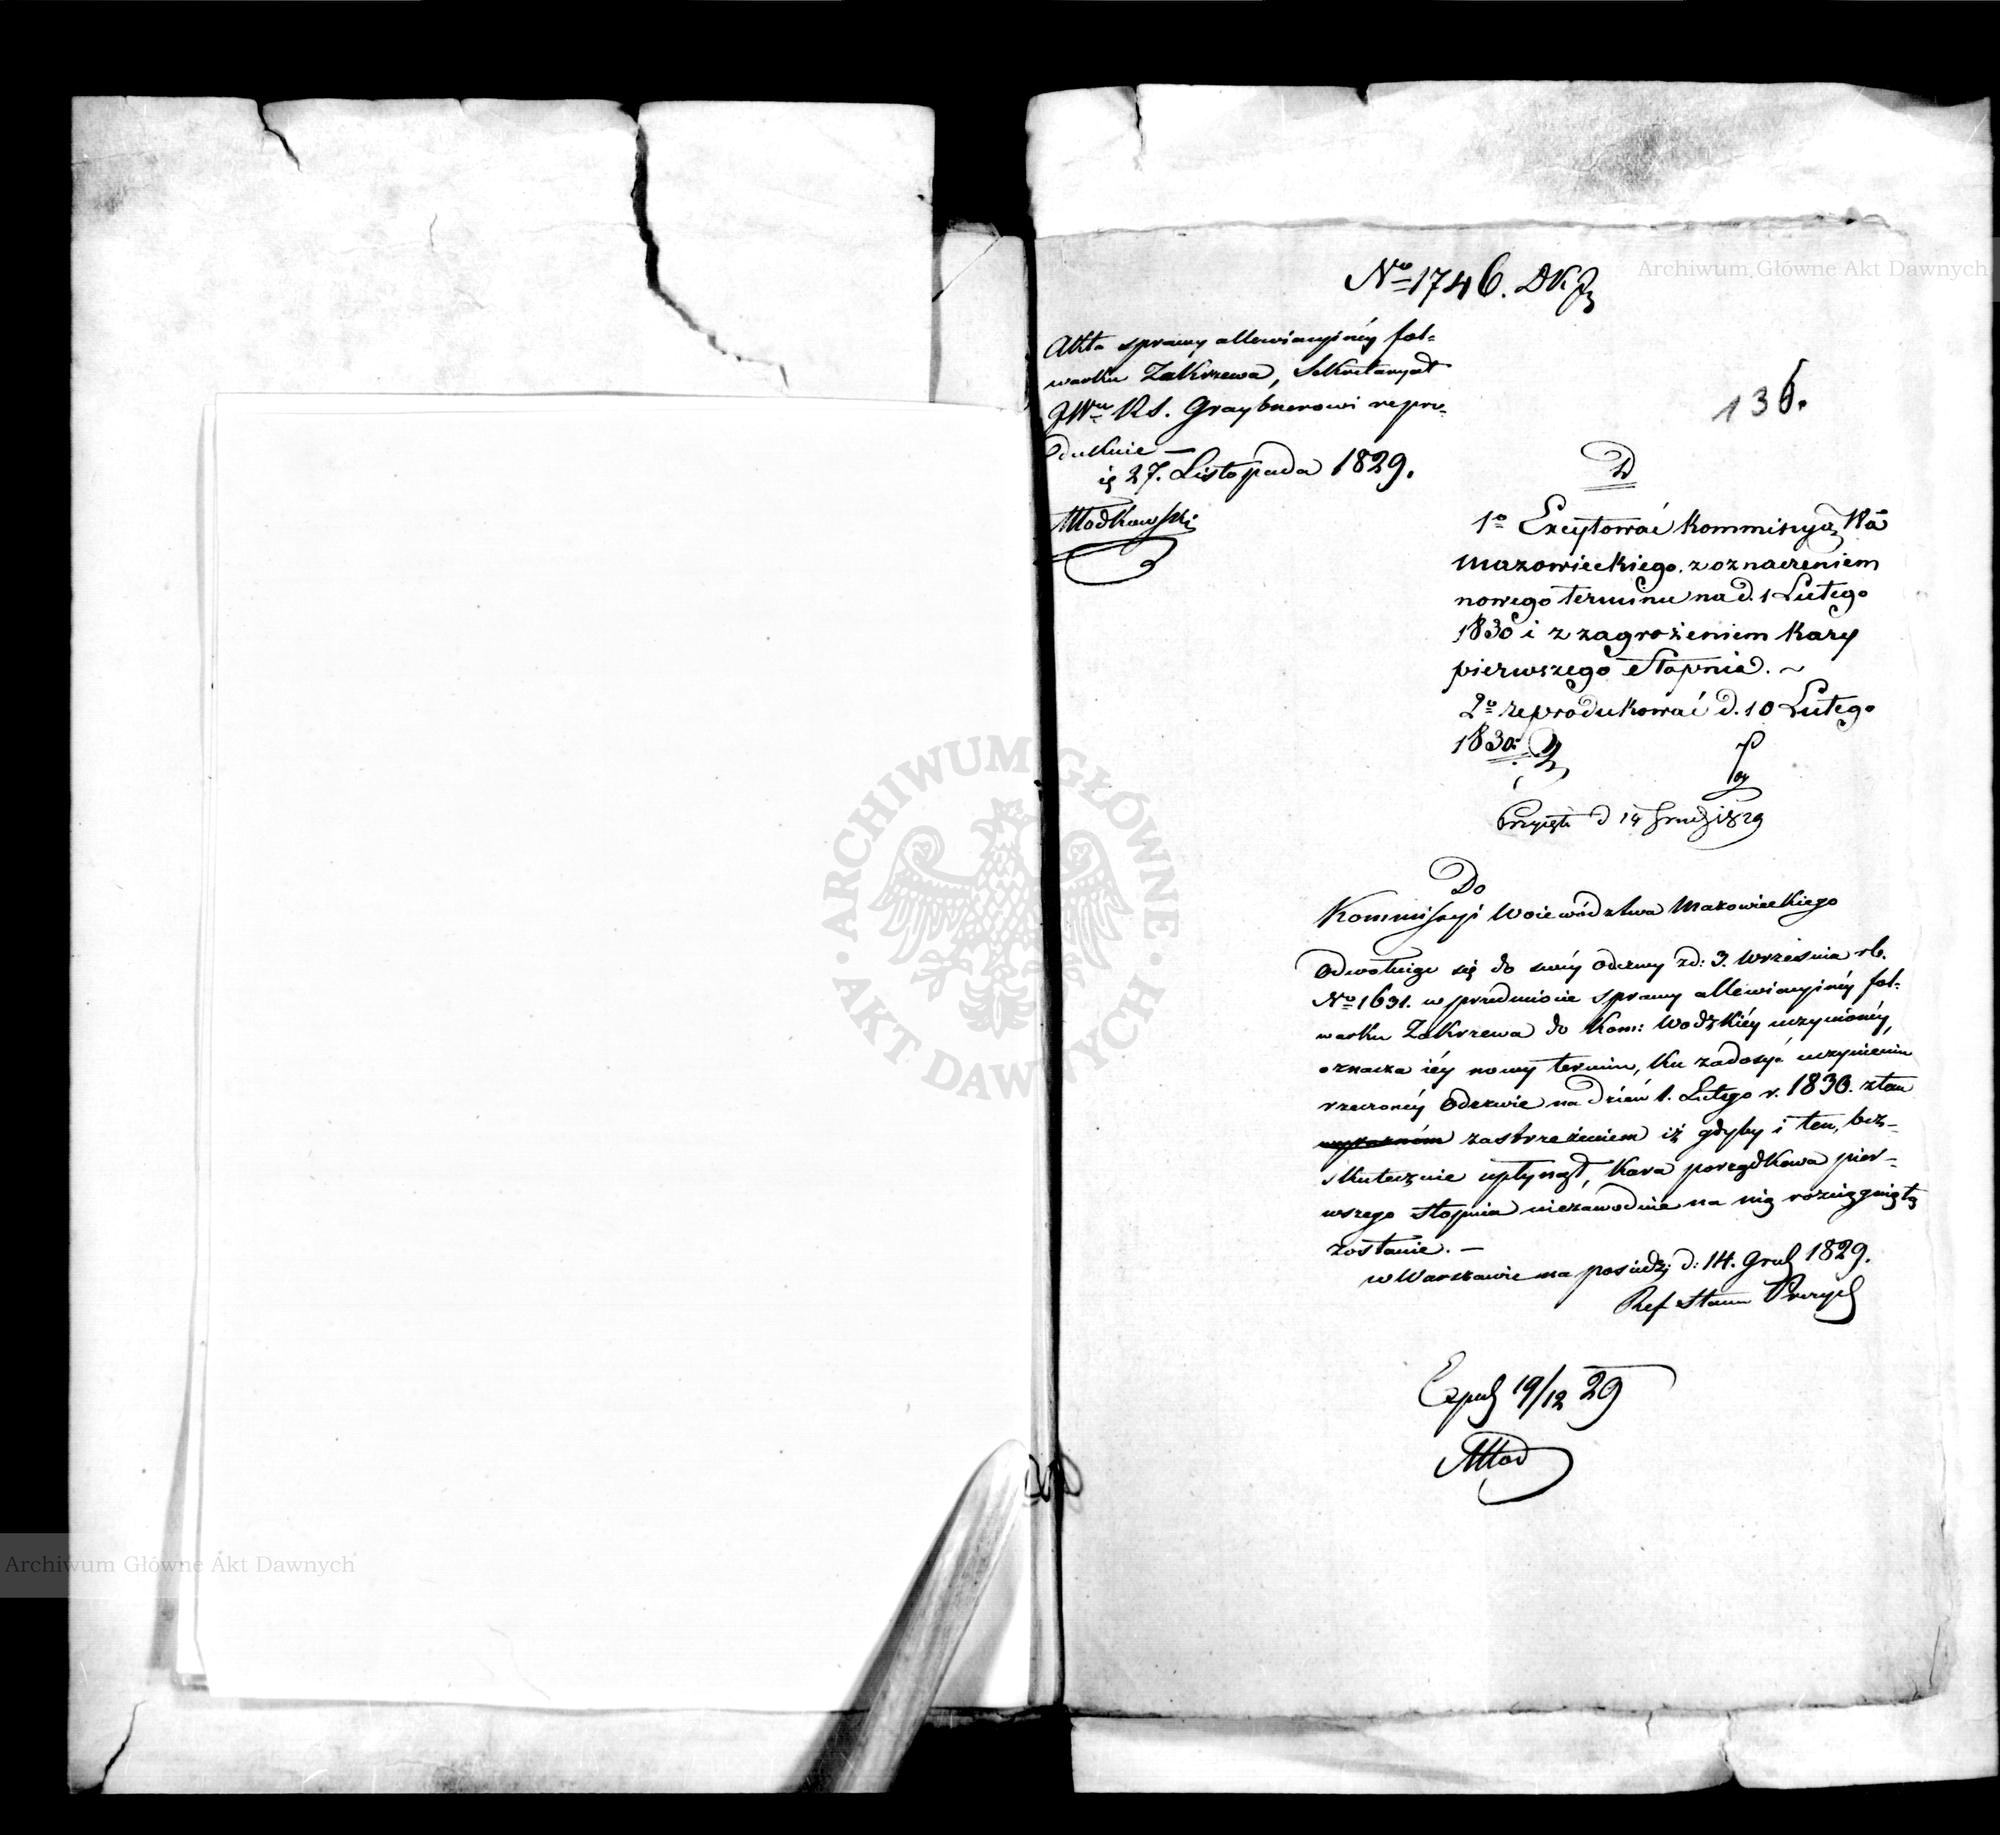 No 1746. DKJ
136.
Akta sprawy allewiacyinéy fol=
warku Zakrzewa, Sekretaryat
JWu RS. Graybnerowi repro=
dukuie —
27. Listopada 1829.
Młodkowski
D
1o Excytować Kommissyą Wa
Mazowieckiego z oznaczeniem
nowego terminu na d. 1 Lutego
1830 i z zagrożeniem kary
pierwszego stopnia. ~
2o reprodukować d. 10 Lutego
1830.
Przyięto d 14 Grud 1829
Do
Kommissyi Woiewództwa Mazowieckiego
Odwołuiąc się do swéy odezwy z d: 3. Września rb.
No 1631. w przedmiocie sprawy allewiacyinéy fol=
warku Zakrzewa do Kom: Wodzkiéy uczynionéy,
oznacza iéy nowy termin, ku zadosyć uczynieniu
rzeczonéy Odezwie na dzień 1. Lutego r. 1830. z tem
zastrzeżeniem iż gdyby i ten, bez=
skutecznie upłynął, kara porządkowa pier=
wszego stopnia niezawodnie na nią rozciągniętą
zostanie. —
w Warszawie na posiedz: d: 14. Grud 1829.
Ref Stanu
Exped 19/12 29
Młod
Archiwum Główne Akt Dawnych
Archiwum Główne Akt Dawnych
ARCHIWUM GŁÓWNE
AKT DAWNYCH